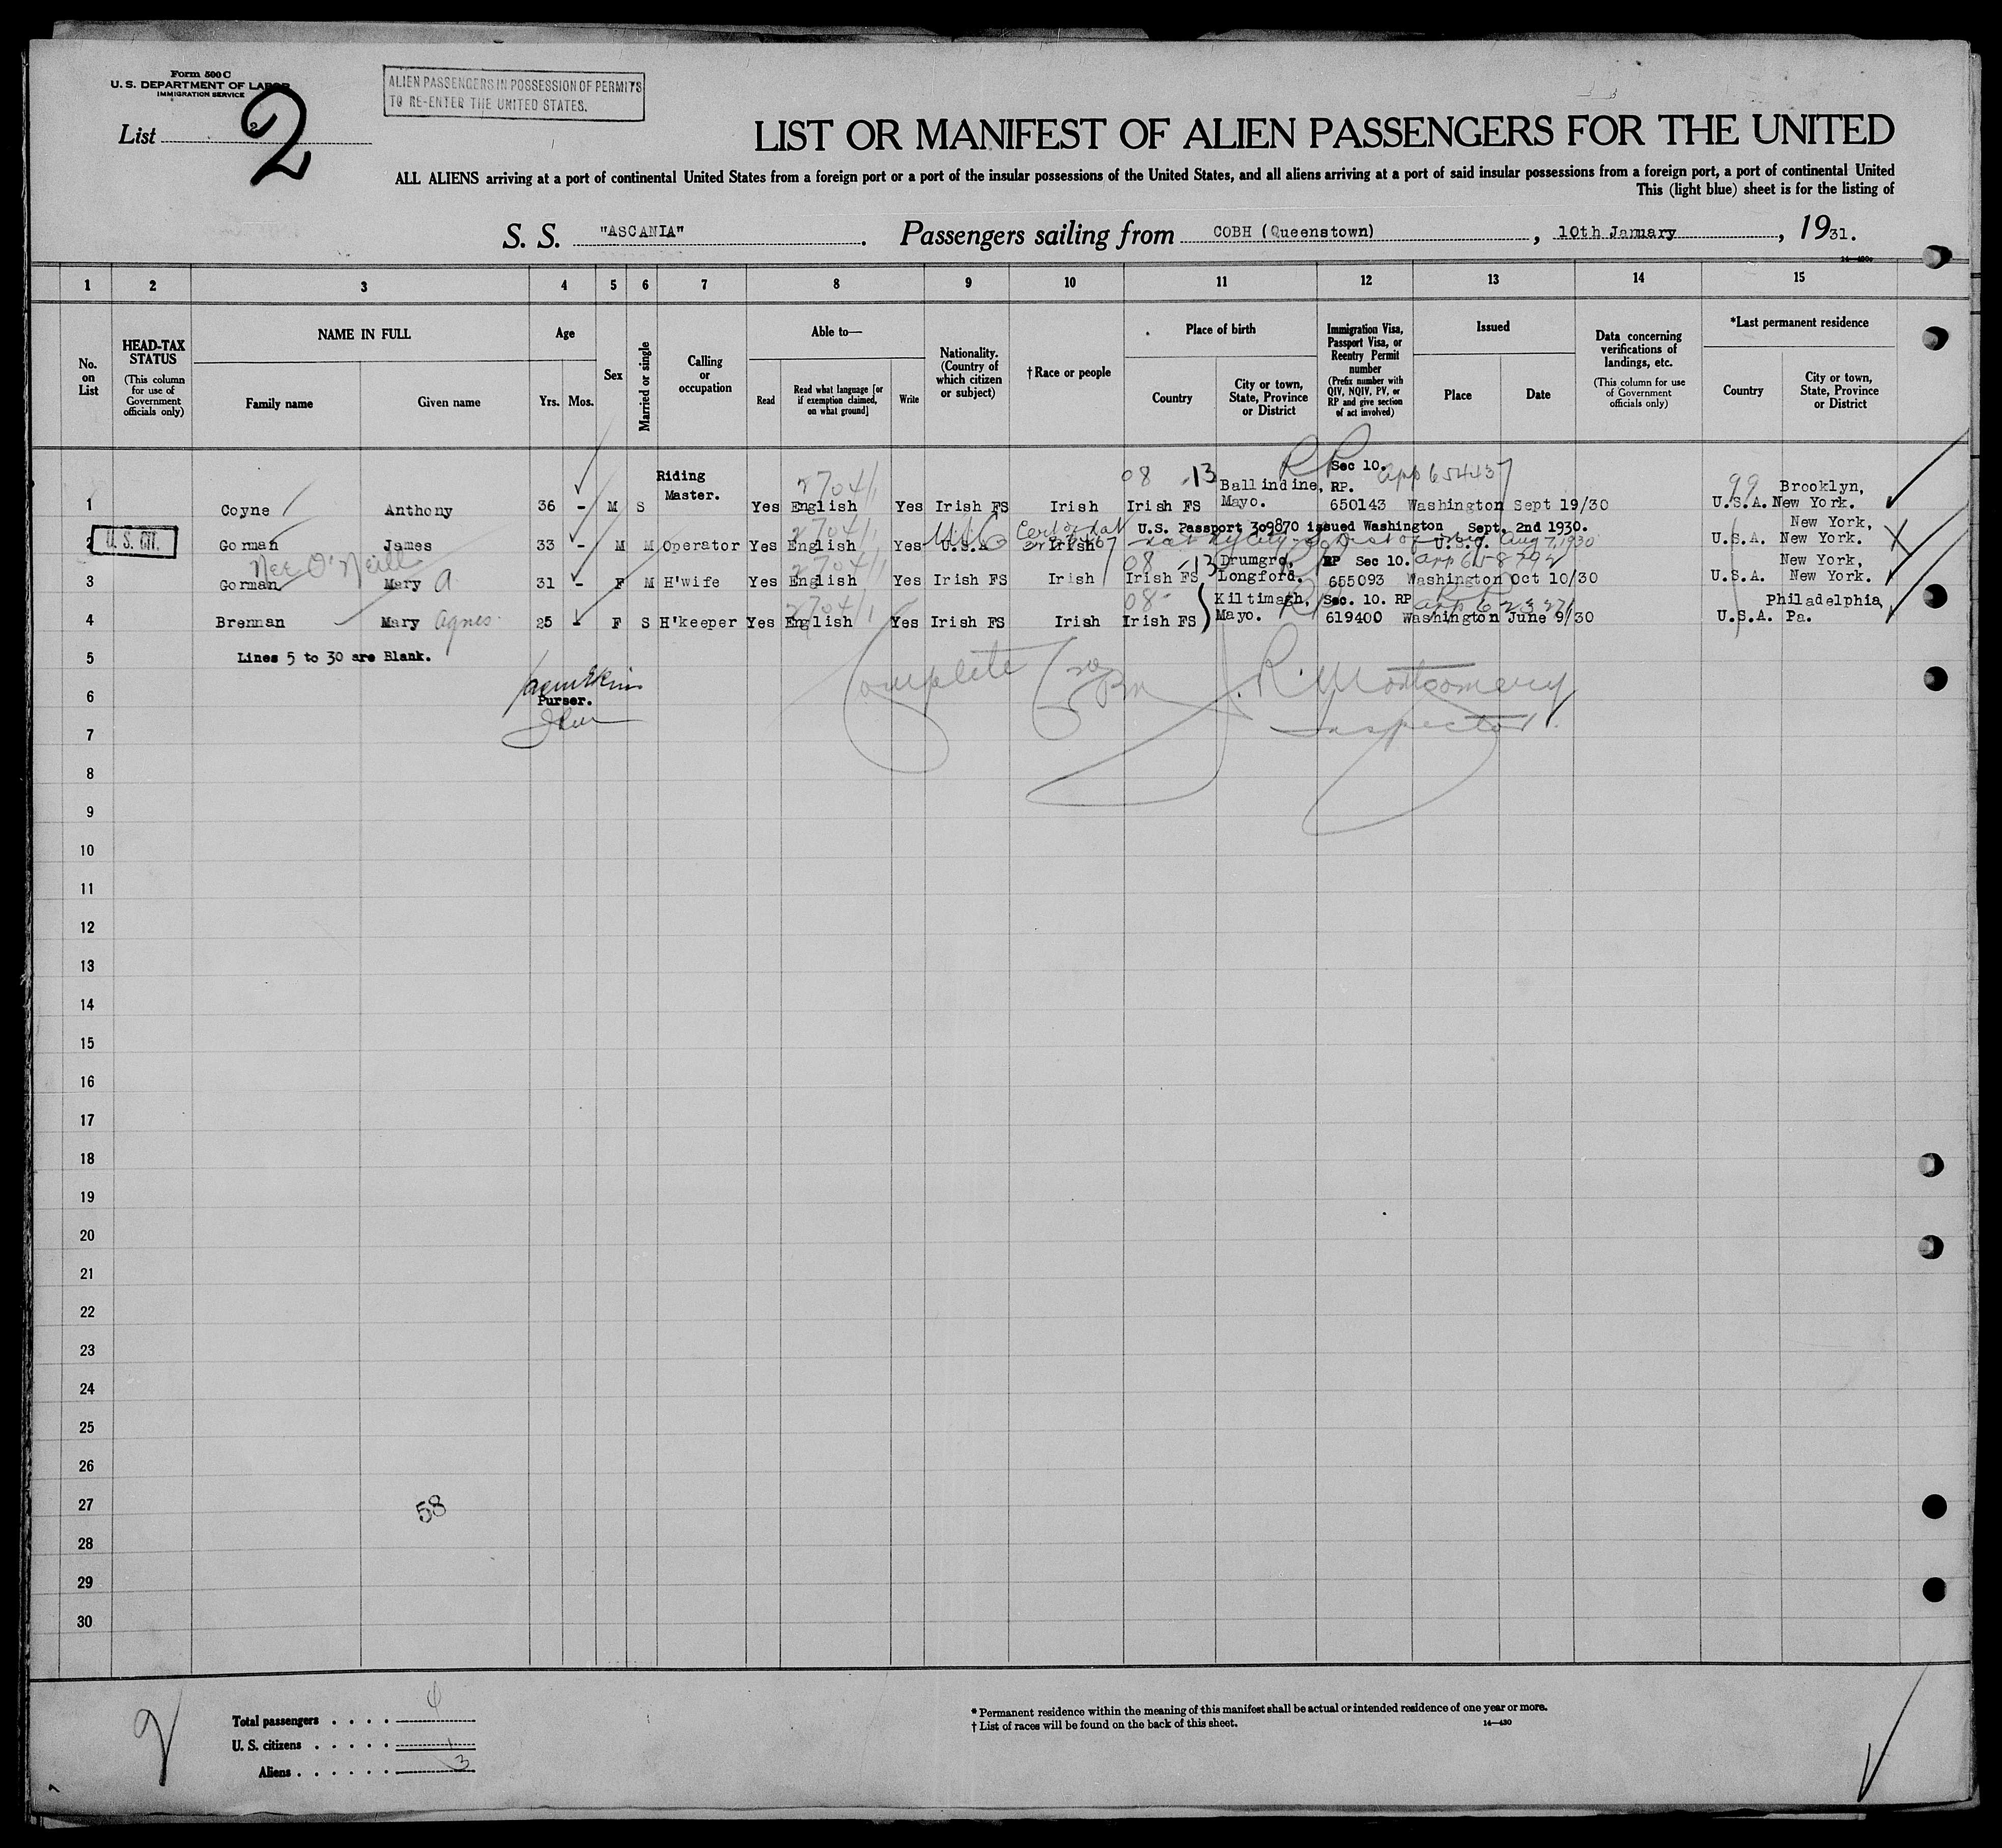 Form 500 C
U. S. DEPARTMENT OF LABOR
IMMIGRATION SERVICE
ALIEN PASSENGERS IN POSSESSION OF PERMITS
TO RE-ENTER THE UNITED STATES.
List 2
2
LIST OR MANIFEST OF ALIEN PASSENGERS FOR THE UNITED
ALL ALIENS arriving at a port of continental United States from a foreign port or a port of the insular possessions of the United States, and all aliens arriving at a port of said insular possessions from a foreign port, a port of continental United
This (light blue) sheet is for the listing of
S. S. "ASCANIA". Passengers sailing from COBH (Queenstown), 10th January, 1931.
1 2 3 4 5 6 7 8 9 10 11 12 13 14 15
No. on List
HEAD-TAX STATUS (This column for use of Government officials only)
NAME IN FULL
Family name Given name
Age
Yrs. Mos.
Sex
Married or single
Calling or occupation
Able to—
Read Read what language [or if exemption claimed, on what ground] Write
Nationality. (Country of which citizen or subject)
†Race or people
Place of birth
Country City or town, State, Province or District
Immigration Visa, Passport Visa, or Reentry Permit number (Prefix number with QIV, NQIV, PV, or RP and give section of act involved)
Issued
Place Date
Data concerning verifications of landings, etc. (This column for use of Government officials only)
*Last permanent residence
Country City or town, State, Province or District
1 Coyne Anthony 36 - M S Riding Master. Yes English Yes Irish FS Irish Irish FS Ballindine, Mayo. Sec 10. RP. 650143 Washington Sept 19/30 U.S.A. Brooklyn, New York.
27041 08 13 RP app 654437 99
U. S. CIT.
2 Gorman James 33 - M M Operator Yes English Yes U.S.A Irish U.S. Passport 309870 issued Washington Sept. 2nd 1930. U.S.A. New York, New York.
27041 USC Aug 7, 1930
Nee O'Neill
3 Gorman Mary A 31 - F M H'wife Yes English Yes Irish FS Irish Irish FS Drumgrd, Longford. RP Sec 10. 655093 Washington Oct 10/30 U.S.A. New York, New York.
27041 08 13 app 658792
4 Brennan Mary Agnes 25 - F S H'keeper Yes English Yes Irish FS Irish Irish FS Kiltimagh, Mayo. Sec. 10. RP 619400 Washington June 9/30 U.S.A. Philadelphia, Pa.
27041 08
5 Lines 5 to 30 are Blank.
6 Purser.
Complete
J. R. Montgomery
Inspector.
7
8
9
10
11
12
13
14
15
16
17
18
19
20
21
22
23
24
25
26
27
58
28
29
30
2
Total passengers . . . . 4
U. S. citizens . . . . . 1
Aliens . . . . . . 3
* Permanent residence within the meaning of this manifest shall be actual or intended residence of one year or more.
† List of races will be found on the back of this sheet. 14—430